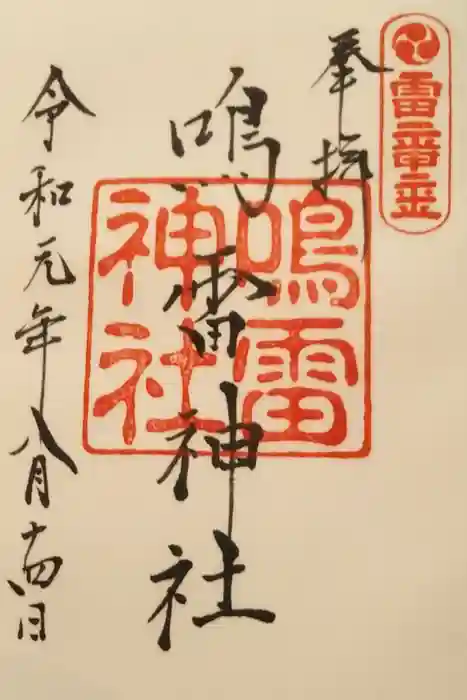 奉拝
鳴雷神社
鳴雷
神社
令和元年八月十四日